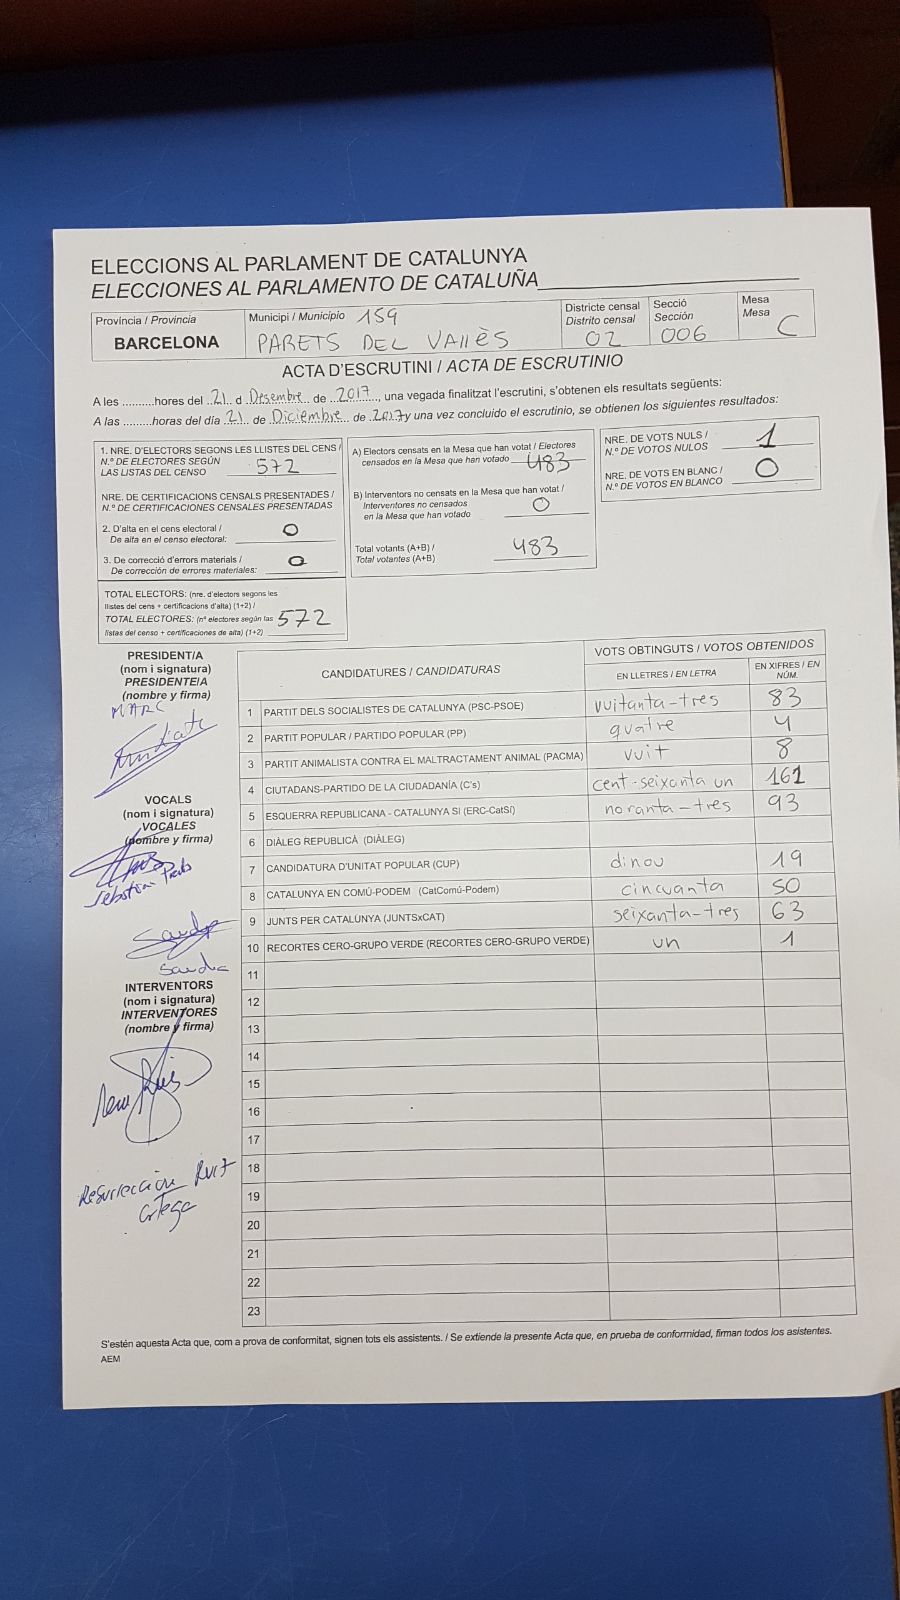 ELECCIONS AL PARLAMENT DE CATALUNYA
ELECCIONES AL PARLAMENTO DE CATALUÑA
Província / Provincia
BARCELONA
Municipi / Municipio 159
PARETS DEL VAllÈS
Districte censal
Distrito censal
02
Secció
Sección
006
Mesa
Mesa
C
ACTA D'ESCRUTINI / ACTA DE ESCRUTINIO
A les ..........hores del ..21.. d Desembre.. de ..2017..., una vegada finalitzat l'escrutini, s'obtenen els resultats següents:
A las .........horas del día 21... de Diciembre.. de 2017 y una vez concluido el escrutinio, se obtienen los siguientes resultados:
1. NRE. D'ELECTORS SEGONS LES LLISTES DEL CENS /
N.º DE ELECTORES SEGÚN
LAS LISTAS DEL CENSO 572
NRE. DE CERTIFICACIONS CENSALS PRESENTADES /
N.º DE CERTIFICACIONES CENSALES PRESENTADAS
2. D'alta en el cens electoral /
De alta en el censo electoral: 0
3. De correcció d'errors materials /
De corrección de errores materiales: 0
TOTAL ELECTORS: (nre. d'electors segons les
llistes del cens + certificacions d'alta) (1+2) /
TOTAL ELECTORES: (nº electores según las
listas del censo + certificaciones de alta) (1+2) 572
A) Electors censats en la Mesa que han votat / Electores
censados en la Mesa que han votado 483
B) Interventors no censats en la Mesa que han votat /
Interventores no censados
en la Mesa que han votado 0
Total votants (A+B) /
Total votantes (A+B) 483
NRE. DE VOTS NULS /
N.º DE VOTOS NULOS 1
NRE. DE VOTS EN BLANC /
N.º DE VOTOS EN BLANCO 0
PRESIDENT/A
(nom i signatura)
PRESIDENTE/A
(nombre y firma)
MARC
VOCALS
(nom i signatura)
VOCALES
(nombre y firma)
Sandra
INTERVENTORS
(nom i signatura)
INTERVENTORES
(nombre y firma)
Resurreccion Ruiz
Ortega
CANDIDATURES / CANDIDATURAS
VOTS OBTINGUTS / VOTOS OBTENIDOS
EN LLETRES / EN LETRA
EN XIFRES / EN NÚM.
1 PARTIT DELS SOCIALISTES DE CATALUNYA (PSC-PSOE) vuitanta-tres 83
2 PARTIT POPULAR / PARTIDO POPULAR (PP) quatre 4
3 PARTIT ANIMALISTA CONTRA EL MALTRACTAMENT ANIMAL (PACMA) vuit 8
4 CIUTADANS-PARTIDO DE LA CIUDADANÍA (C's) cent-seixanta un 161
5 ESQUERRA REPUBLICANA - CATALUNYA SI (ERC-CatSí) noranta-tres 93
6 DIÀLEG REPUBLICÀ (DIÀLEG)
7 CANDIDATURA D'UNITAT POPULAR (CUP) dinou 19
8 CATALUNYA EN COMÚ-PODEM (CatComú-Podem) cincuanta 50
9 JUNTS PER CATALUNYA (JUNTSxCAT) seixanta-tres 63
10 RECORTES CERO-GRUPO VERDE (RECORTES CERO-GRUPO VERDE) un 1
11
12
13
14
15
16
17
18
19
20
21
22
23
S'estén aquesta Acta que, com a prova de conformitat, signen tots els assistents. / Se extiende la presente Acta que, en prueba de conformidad, firman todos los asistentes.
AEM